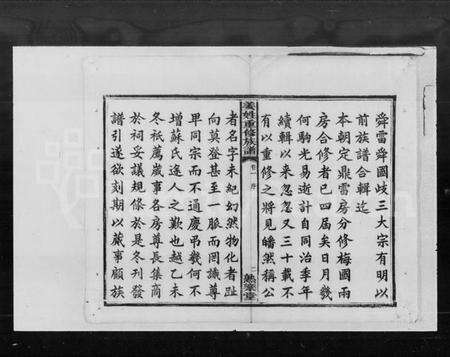 舜雷舜國岐三大宗有明以
前族譜合輯迄
本朝定鼎雷房分修梅國兩
房合修者已四届矣日月幾
何駒光易逝計自同治季年
續輯以来忽忽又三十載不
有以重修之將見皤然稱公
姜姓重修族譜 卷一 序 二 熟𦍒堂
者名字未紀幻然物化者趾
向莫登甚至一脈而罔識尊
卑同宗而不通慶弔幾何不
增蘇氏途人之歎也越乙未
冬祇薦歲事各房尊長集商
於祠妥議規條於是冬刋發
譜引遂欲刻期以蕆事顧族